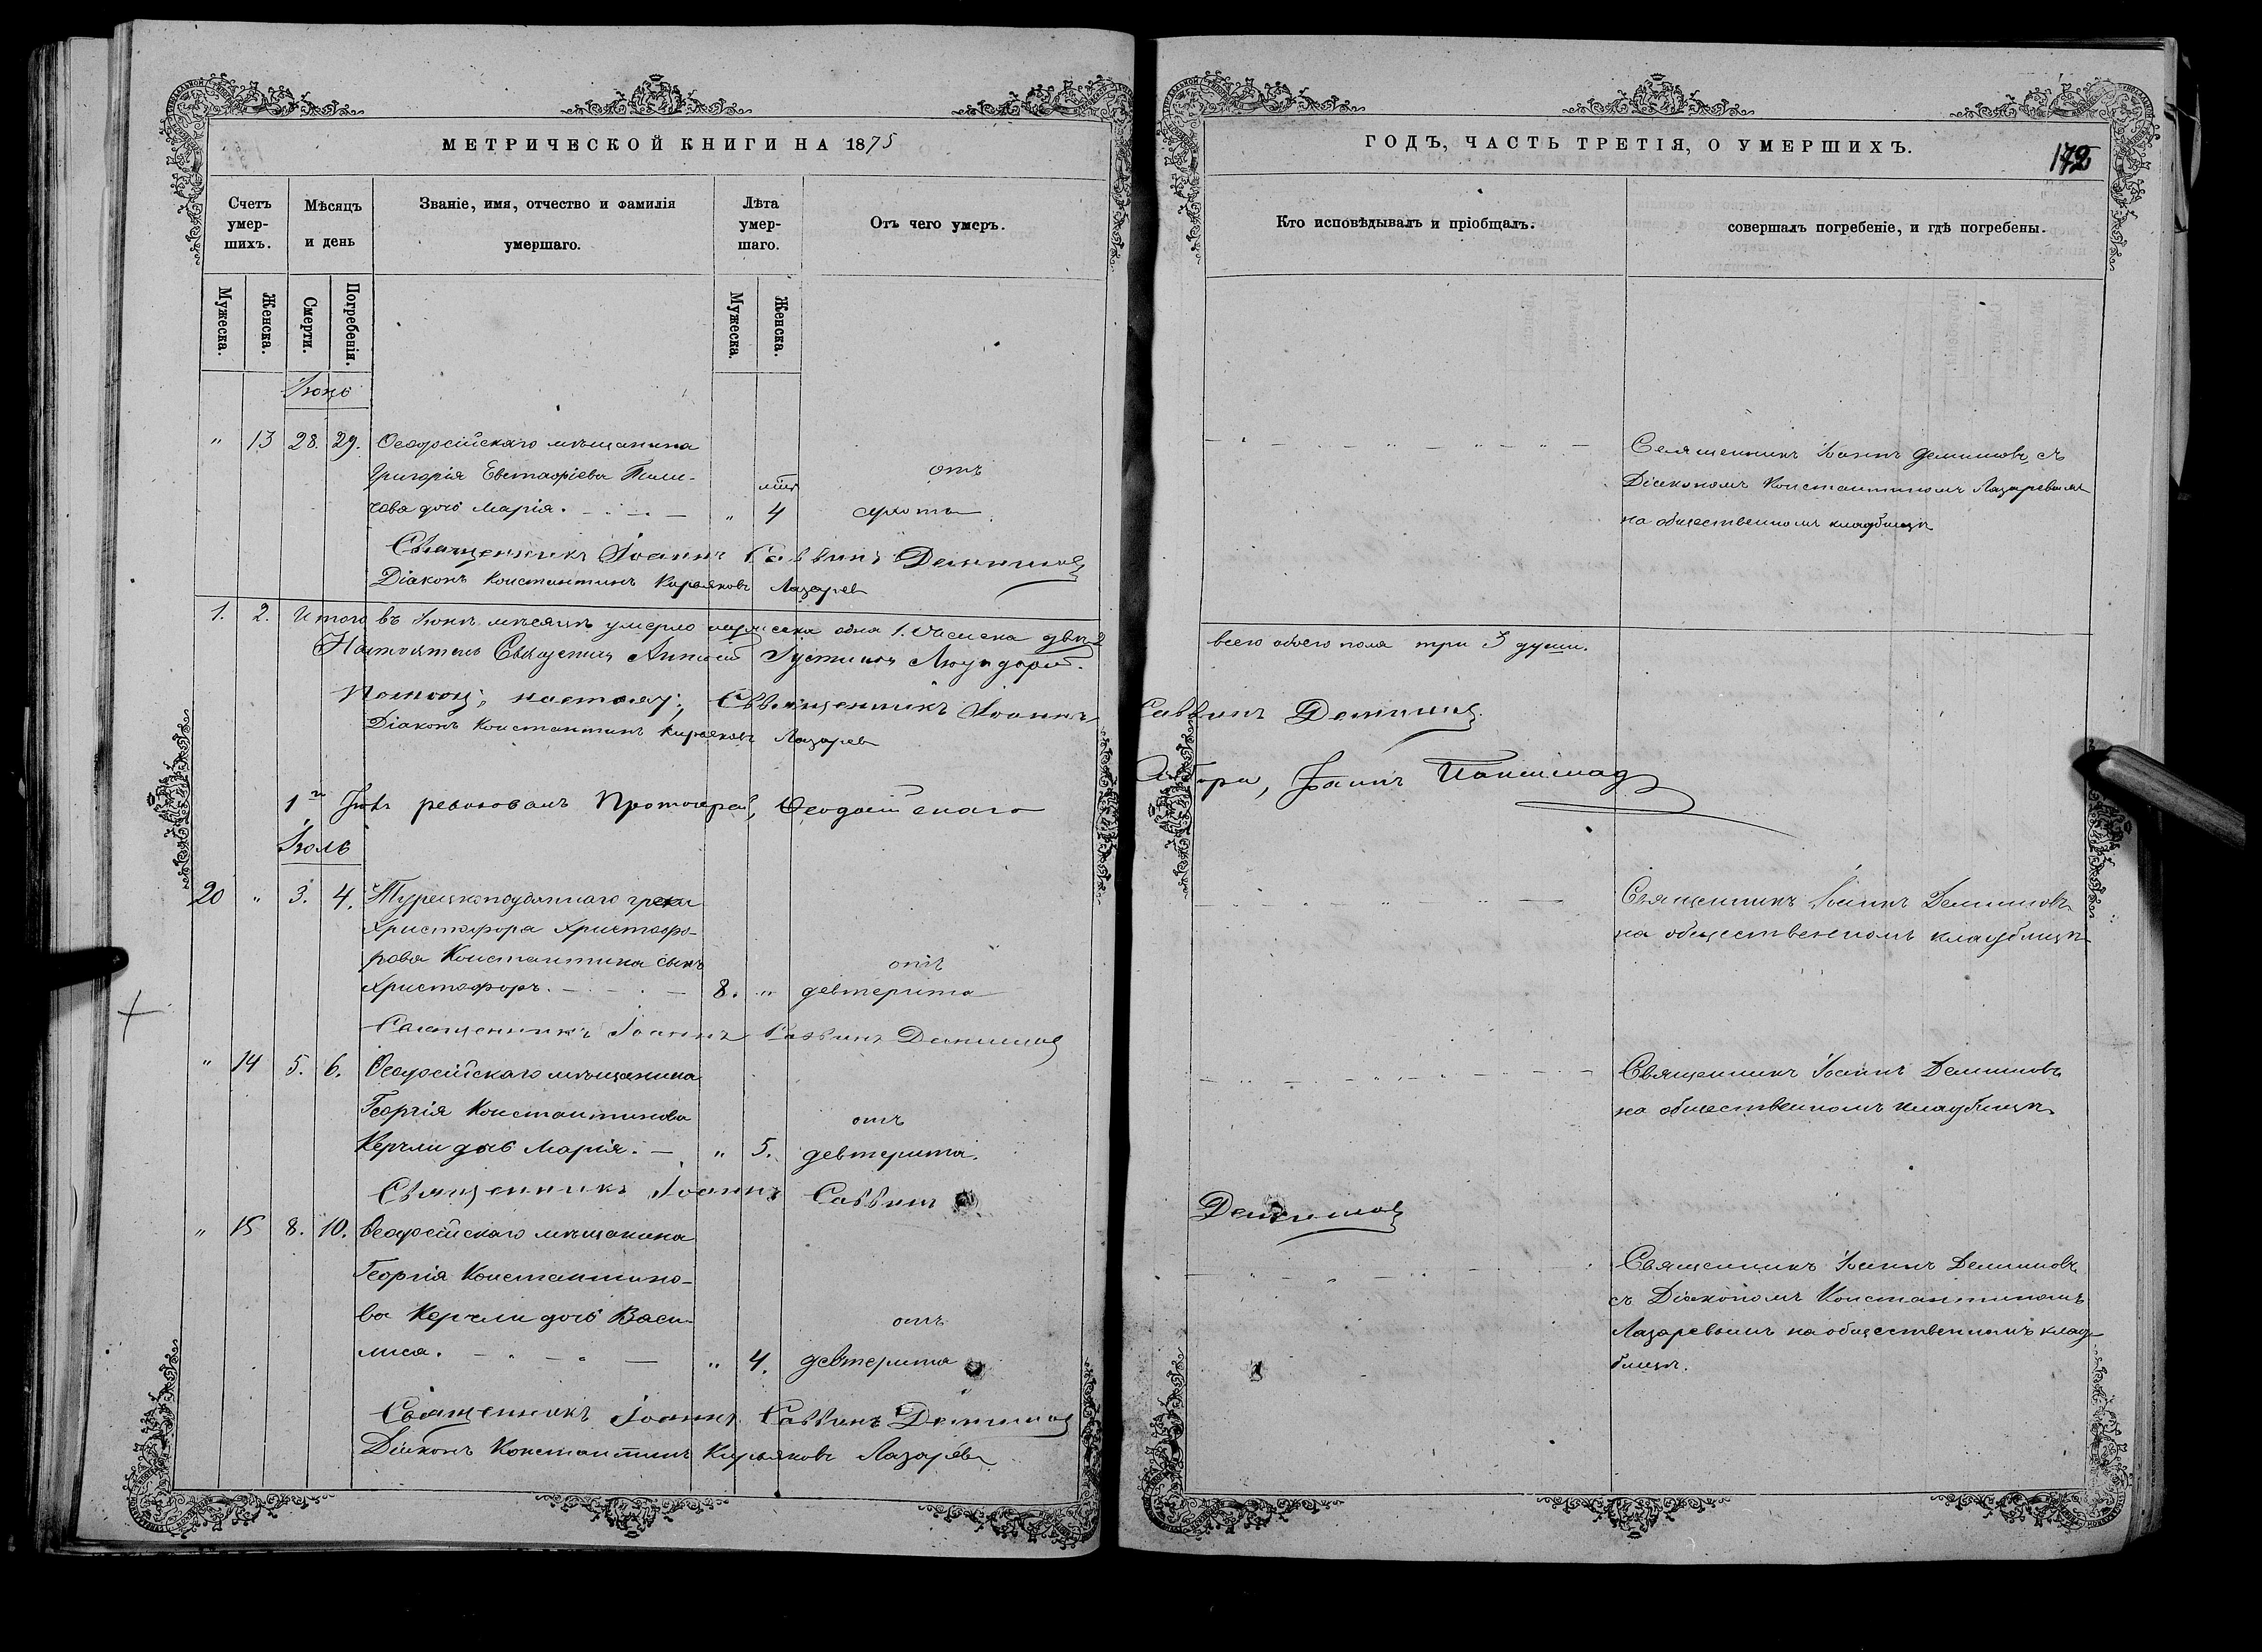 МЕТРИЧЕСКОЙ КНИГИ НА 1875
Счетъ умер-шихъ.
Мѣсяцъ и день
Званіе, имя, отчество и фамилія умершаго.
Лѣта умер-шаго.
Отъ чего умеръ.
Мужеска.
Женска.
Смерти.
Погребенія.
Мужеска.
Женска.
Іюнь
" 13 28. 29. Ѳеодосійскаго мѣщанина
Григорія Евстафіева
отъ
дочь Марія. " 4
Священникъ Іоаннъ Саввинъ Демяновъ
Діаконъ Константинъ Кирьяковъ Лазаревъ
1. 2. Итого въ Іюнѣ мѣсяцѣ умерло мужеска одна 1. женска двѣ 2
Настоятель Священникъ
Священникъ Іоаннъ
Діаконъ Константинъ Кирьяковъ Лазаревъ
Протоіерей, Ѳеодосійскаго
Іюль
20 " 3. 4. Турецкоподаннаго грека
Христофора Христофо-
рова Константина сынъ
отъ
Христофоръ. 8. " дефтерита
Священникъ Іоаннъ Саввинъ
" 14 5. 6. Ѳеодосійскаго мѣщанина
Георгія Константинова
отъ
Керчли дочь Марія. " 5. дефтерита.
Священникъ Іоаннъ Саввинъ
" 15 8. 10. Ѳеодосійскаго мѣщанина
Георгія Константино-
ва Керчли дочь Васи-
отъ
лиса. " 4. дефтерита
Священникъ Іоаннъ Саввинъ
Діаконъ Константинъ Кирьяковъ Лазаревъ
ГОДЪ, ЧАСТЬ ТРЕТІЯ, О УМЕРШИХЪ.
172
Кто исповѣдывалъ и пріобщалъ.
совершалъ погребеніе, и гдѣ погребены.
Священникъ Іоаннъ съ
Діакономъ Константиномъ Лазаревымъ
на общественномъ кладбищѣ
всего обоего пола три 3 души.
Саввинъ
Священникъ Іоаннъ
на общественномъ кладбищѣ
Священникъ Іоаннъ
на общественномъ кладбищѣ
Священникъ Іоаннъ
съ Діакономъ Константиномъ
Лазаревымъ на общественномъ клад-
бищѣ.